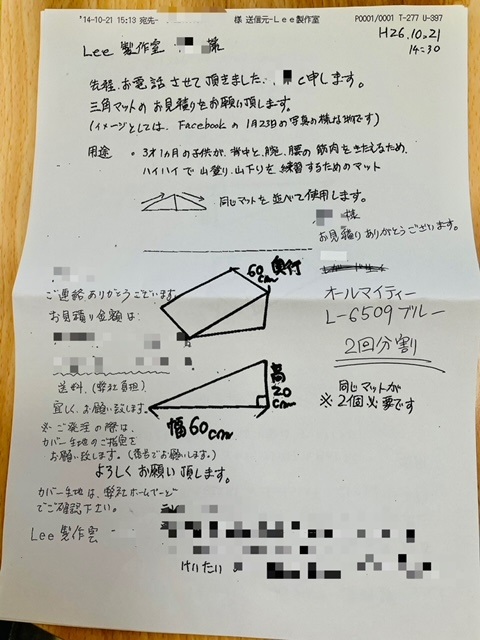 '14-10-21 15:13 宛先- 様 送信元-Lee製作室 P0001/0001 T-277 U-397
H26.10.21
14:30
Lee 製作室 様
先程、お電話させて頂きました、 と申します。
三角マットのお見積りをお願い頂します。
(イメージとしては、Facebookの1月23日の写真の様な物です)
用途 ・3才1ヵ月の子供が、背中と、腕、腰の筋肉をきたえるため、
ハイハイで山登り、山下りを練習するためのマット
同じマットを並べて使用します。
様
お見積りありがとうございます。
60cm 奥行
ご連絡ありがとうございます。
お見積り金額は
オールマイティー
L-6509 ブルー
2回分割
送料.(弊社負担)
宜しくお願い致します。
高20cm
幅60cm
同じマットが
※2個必要です
※ご発注の際は、
カバー生地のご指定を
お願い致します。(番号でお願いします。)
よろしくお願い頂します。
カバー生地は、弊社ホームページ
でご確認下さい。
Lee 製作室
けいたい